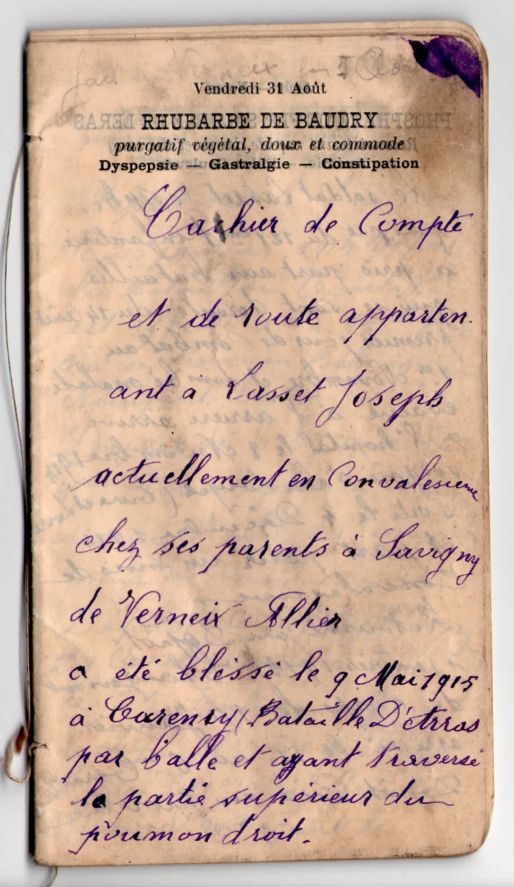 Vendredi 31 Août
RHUBARBE DE BAUDRY
purgatif végétal, doux et commode
Dyspepsie — Gastralgie — Constipation
Cachier de Compte
et de route apparten.
ant à Lasset Joseph
actuellement en Convalesience
chez ses parents à Savigny
de Verneix Allier
a été bléssé le 9 Mai 1915
à Carency (Bataille D'Arras
par balle et ayant traversé
la partie supérieur du
poumon droit.